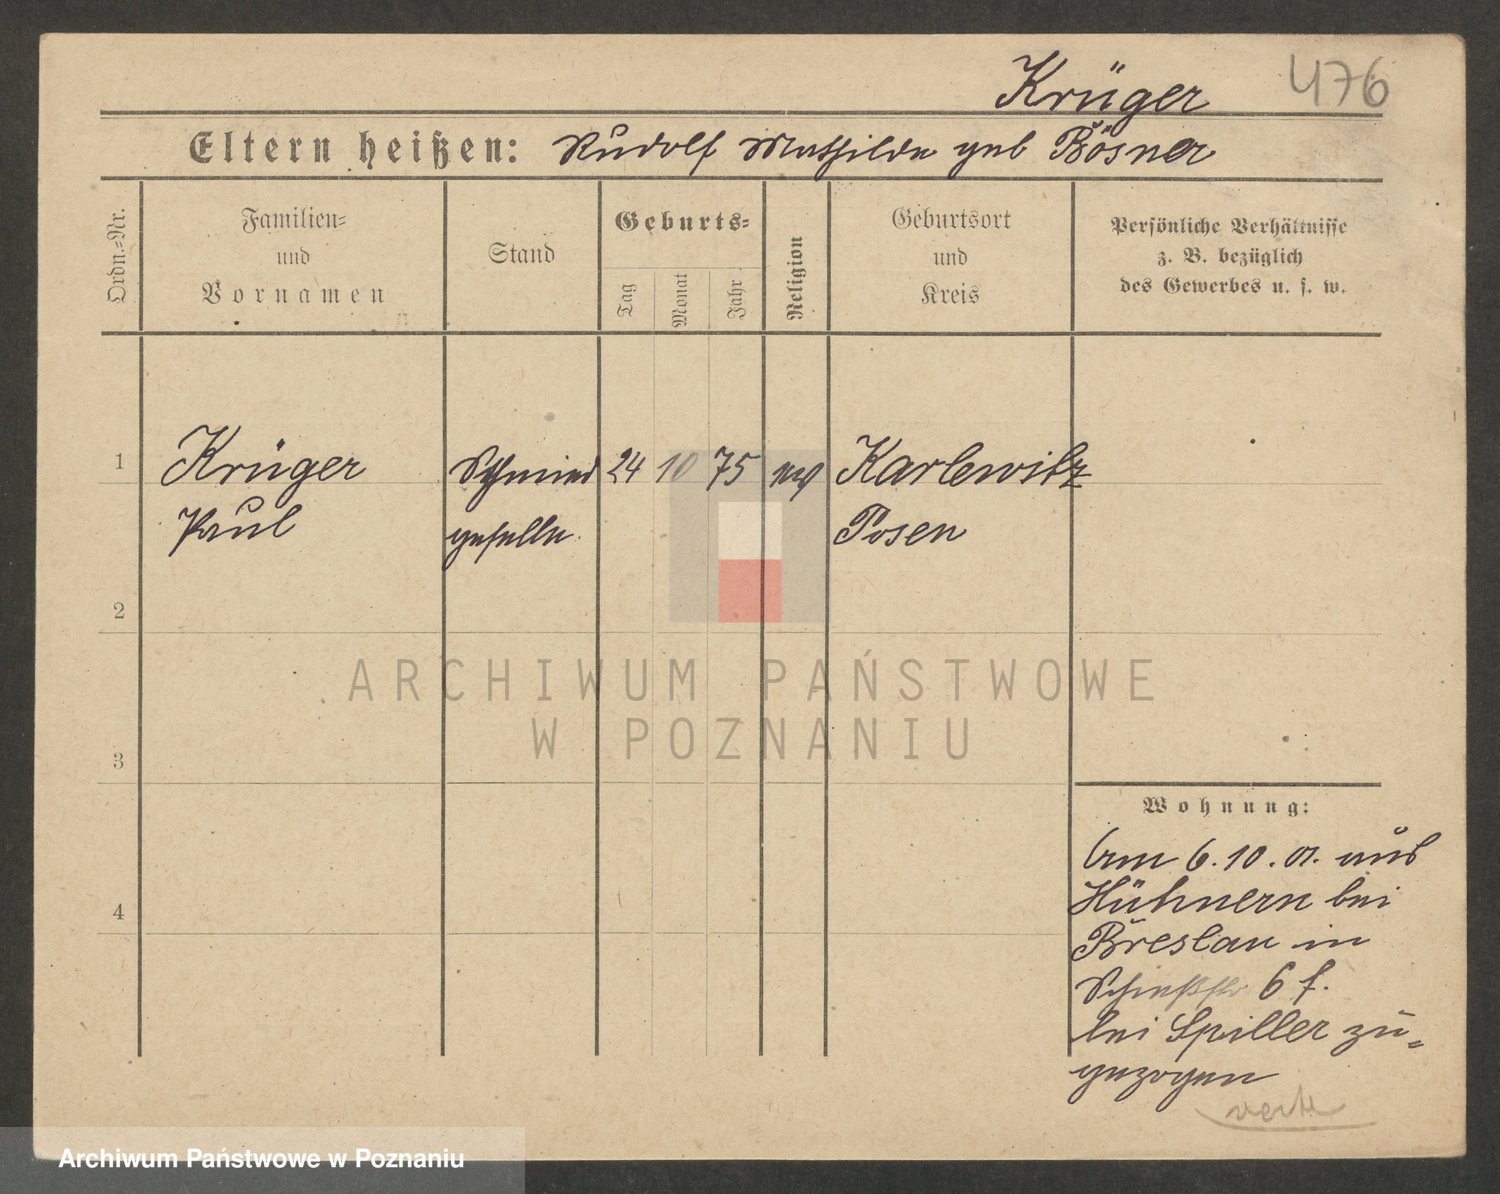 Krüger 476
Eltern heißen: Rudolf Mathilde geb Bösner
Ordn.=Nr.
Familien=
und
Vornamen
Stand
Geburts=
Tag
Monat
Jahr
Religion
Geburtsort
und
Kreis
Persönliche Verhältnisse
z. B. bezüglich
des Gewerbes u. s. w.
1 Krüger Schmied 24 10 75 ev Karlewitz
Paul geselle. Posen
2
3
4
ARCHIWUM PAŃSTWOWE
W POZNANIU
Wohnung:
Am 6.10.01. aus
Hühnern bei
Breslau in
Schießstr 6 f.
bei Spiller zu=
gezogen
verte
Archiwum Państwowe w Poznaniu